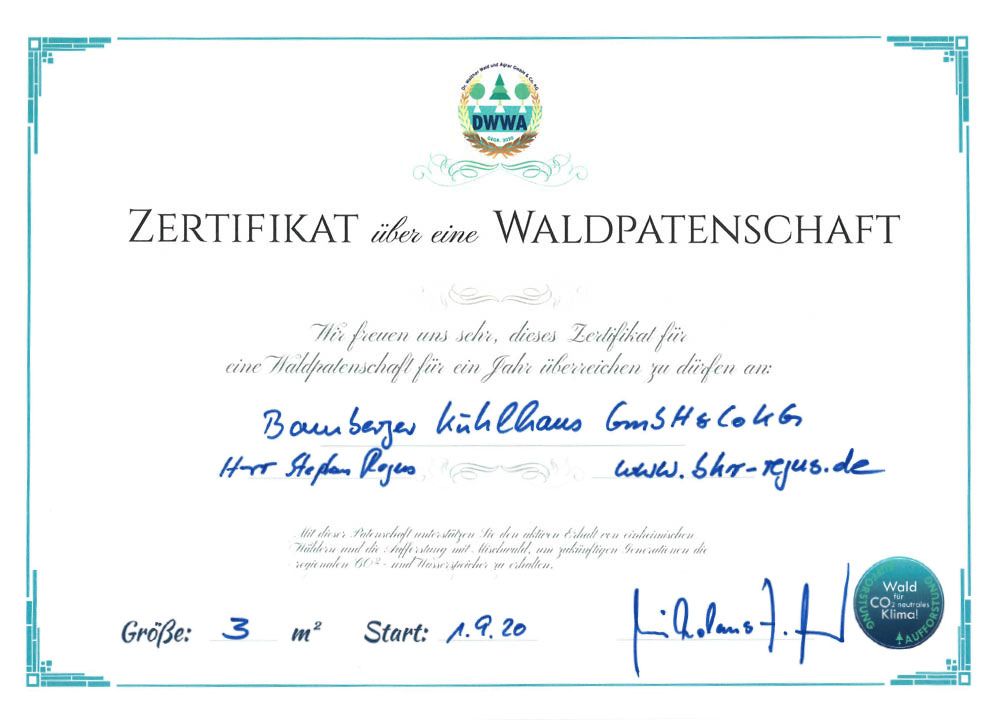 Dr. Walther Wald und Agrar GmbH & Co. KG
DWWA
GEGR. 2020
ZERTIFIKAT über eine WALDPATENSCHAFT
Wir freuen uns sehr, dieses Zertifikat für
eine Waldpatenschaft für ein Jahr überreichen zu dürfen an:
Bamberger Kühlhaus GmbH & Co KG
Herr Stephan Regus www.bhr-regus.de
Mit dieser Patenschaft unterstützen Sie den aktiven Erhalt von einheimischen
Wäldern und die Aufforstung mit Mischwald, um zukünftigen Generationen die
regionalen CO²- und Wasserspeicher zu erhalten.
Größe: 3 m² Start: 1.9.20
Wald
für
CO₂ neutrales
Klima!
AUFFORSTUNG
AUFFORSTUNG